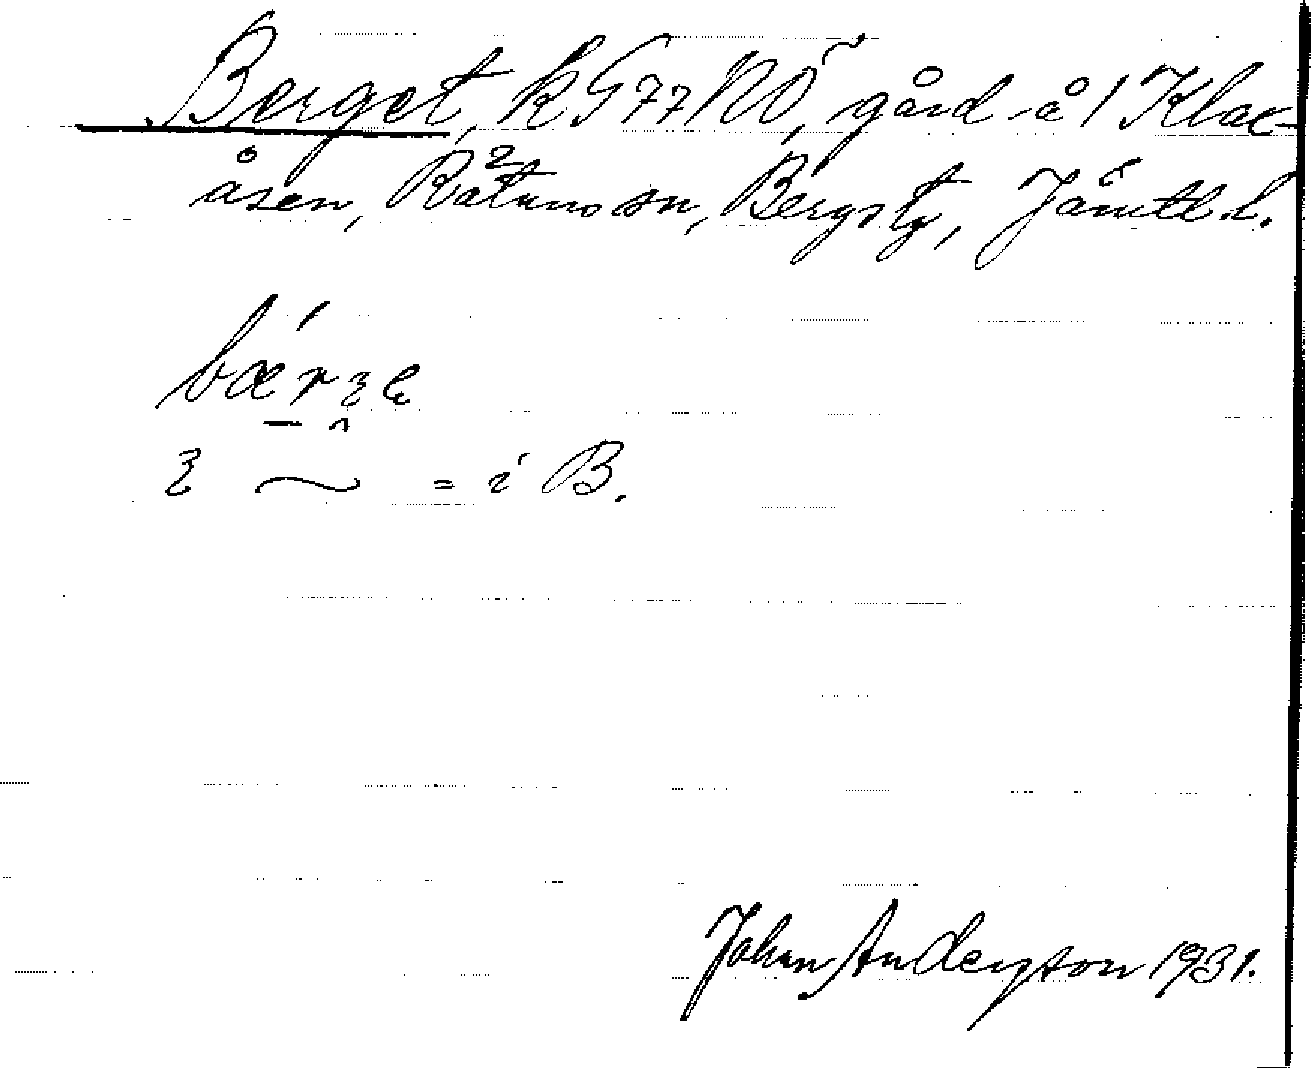 Berget, k G 77 NÖ, gård å 1 Klax-
åsen, Rätans sn, Bergs tg, Jämtl. l.
bærʒe
ʒ ~ = i B.
Johan Anderson 1931.